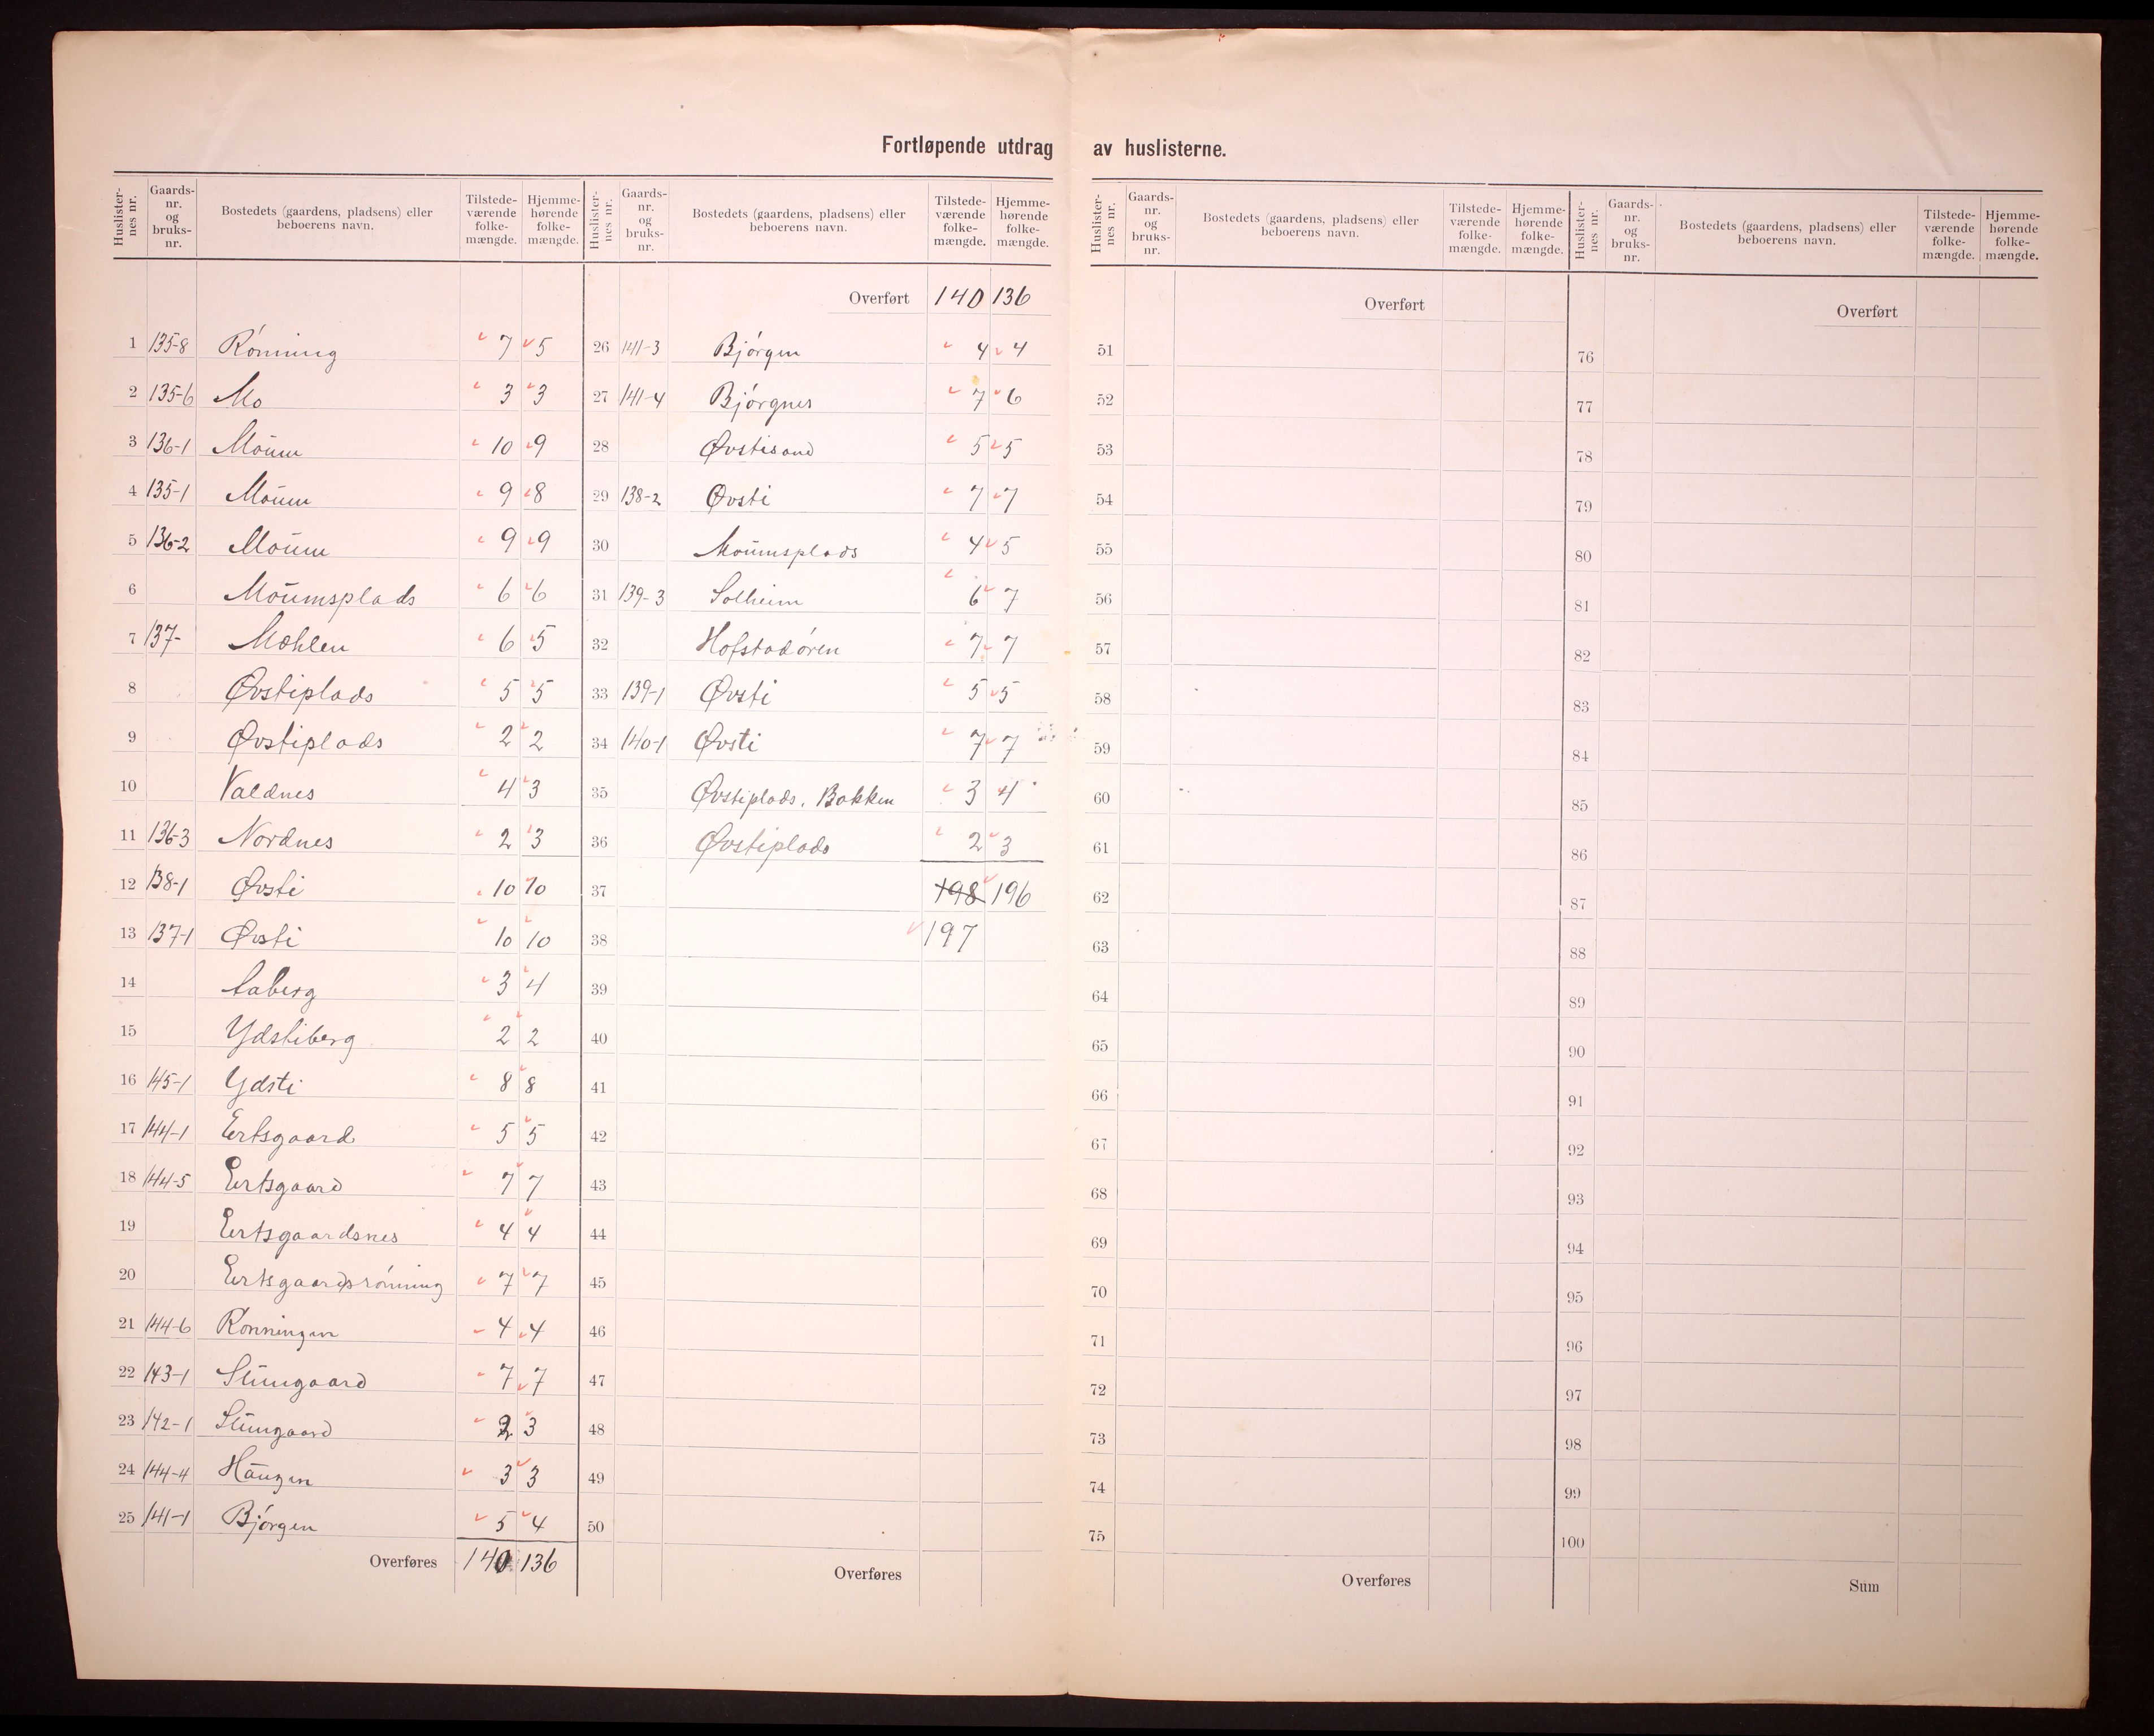 Fortløpende utdrag av huslisternе.
Huslister-nes nr. Gaards-nr. og bruks-nr. Bostedets (gaardens, pladsens) eller beboerens navn. Tilstede-værende folke-mængde. Hjemme-hørende folke-mængde.
1 135-8 Rönning 7 5
2 135-6 Mo 3 3
3 136-1 Moum 10 9
4 135-1 Moum 9 8
5 136-2 Moum 9 9
6 Moumsplads 6 6
7 137- Mæhlen 6 5
8 Øvstiplads 5 5
9 Øvstiplads 2 2
10 Valdnes 4 3
11 136-3 Nordnes 2 3
12 138-1 Øvsti 10 10
13 137-1 Øvsti 10 10
14 Aaberg 3 4
15 Ydstiberg 2 2
16 145-1 Ydsti 8 8
17 144-1 Ertsgaard 5 5
18 144-5 Ertsgaard 7 7
19 Ertsgaardsnes 4 4
20 Ertsgaardsrönning 7 7
21 144-6 Rönningen 4 4
22 143-1 Stuugaard 7 7
23 142-1 Stuugaard 2 3
24 144-4 Haugen 3 3
25 141-1 Bjørgen 5 4
Overføres 140 136
Huslister-nes nr. Gaards-nr. og bruks-nr. Bostedets (gaardens, pladsens) eller beboerens navn. Tilstede-værende folke-mængde. Hjemme-hørende folke-mængde.
Overført 140 136
26 141-3 Bjørgen 4 4
27 141-4 Bjørgnes 7 6
28 Øvstisand 5 5
29 138-2 Øvsti 7 7
30 Moumsplads 4 5
31 139-3 Solheim 6 7
32 Hofstadøren 7 7
33 139-1 Øvsti 5 5
34 140-1 Øvsti 7 7
35 Øvstiplads. Bakken 3 4
36 Øvstiplads 2 3
37 198 196
38 197
39
40
41
42
43
44
45
46
47
48
49
50
Overføres
Huslister-nes nr. Gaards-nr. og bruks-nr. Bostedets (gaardens, pladsens) eller beboerens navn. Tilstede-værende folke-mængde. Hjemme-hørende folke-mængde.
Overført
51
52
53
54
55
56
57
58
59
60
61
62
63
64
65
66
67
68
69
70
71
72
73
74
75
Overføres
Huslister-nes nr. Gaards-nr. og bruks-nr. Bostedets (gaardens, pladsens) eller beboerens navn. Tilstede-værende folke-mængde. Hjemme-hørende folke-mængde.
Overført
76
77
78
79
80
81
82
83
84
85
86
87
88
89
90
91
92
93
94
95
96
97
98
99
100
Sum